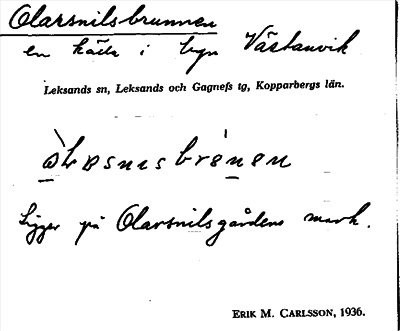 Olarsnilsbrunnen
en källa i byn Västanvik
Leksands sn, Leksands och Gagnefs tg, Kopparbergs län.
Ligger på Olarsnilsgårdens mark.
ERIK M. CARLSSON, 1936.